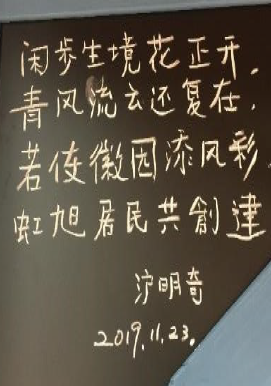 闲步生境花正开.
青风流云还复在,
若使徽因添风彩,
虹旭居民共創建
沪明奇
2019.11.23.